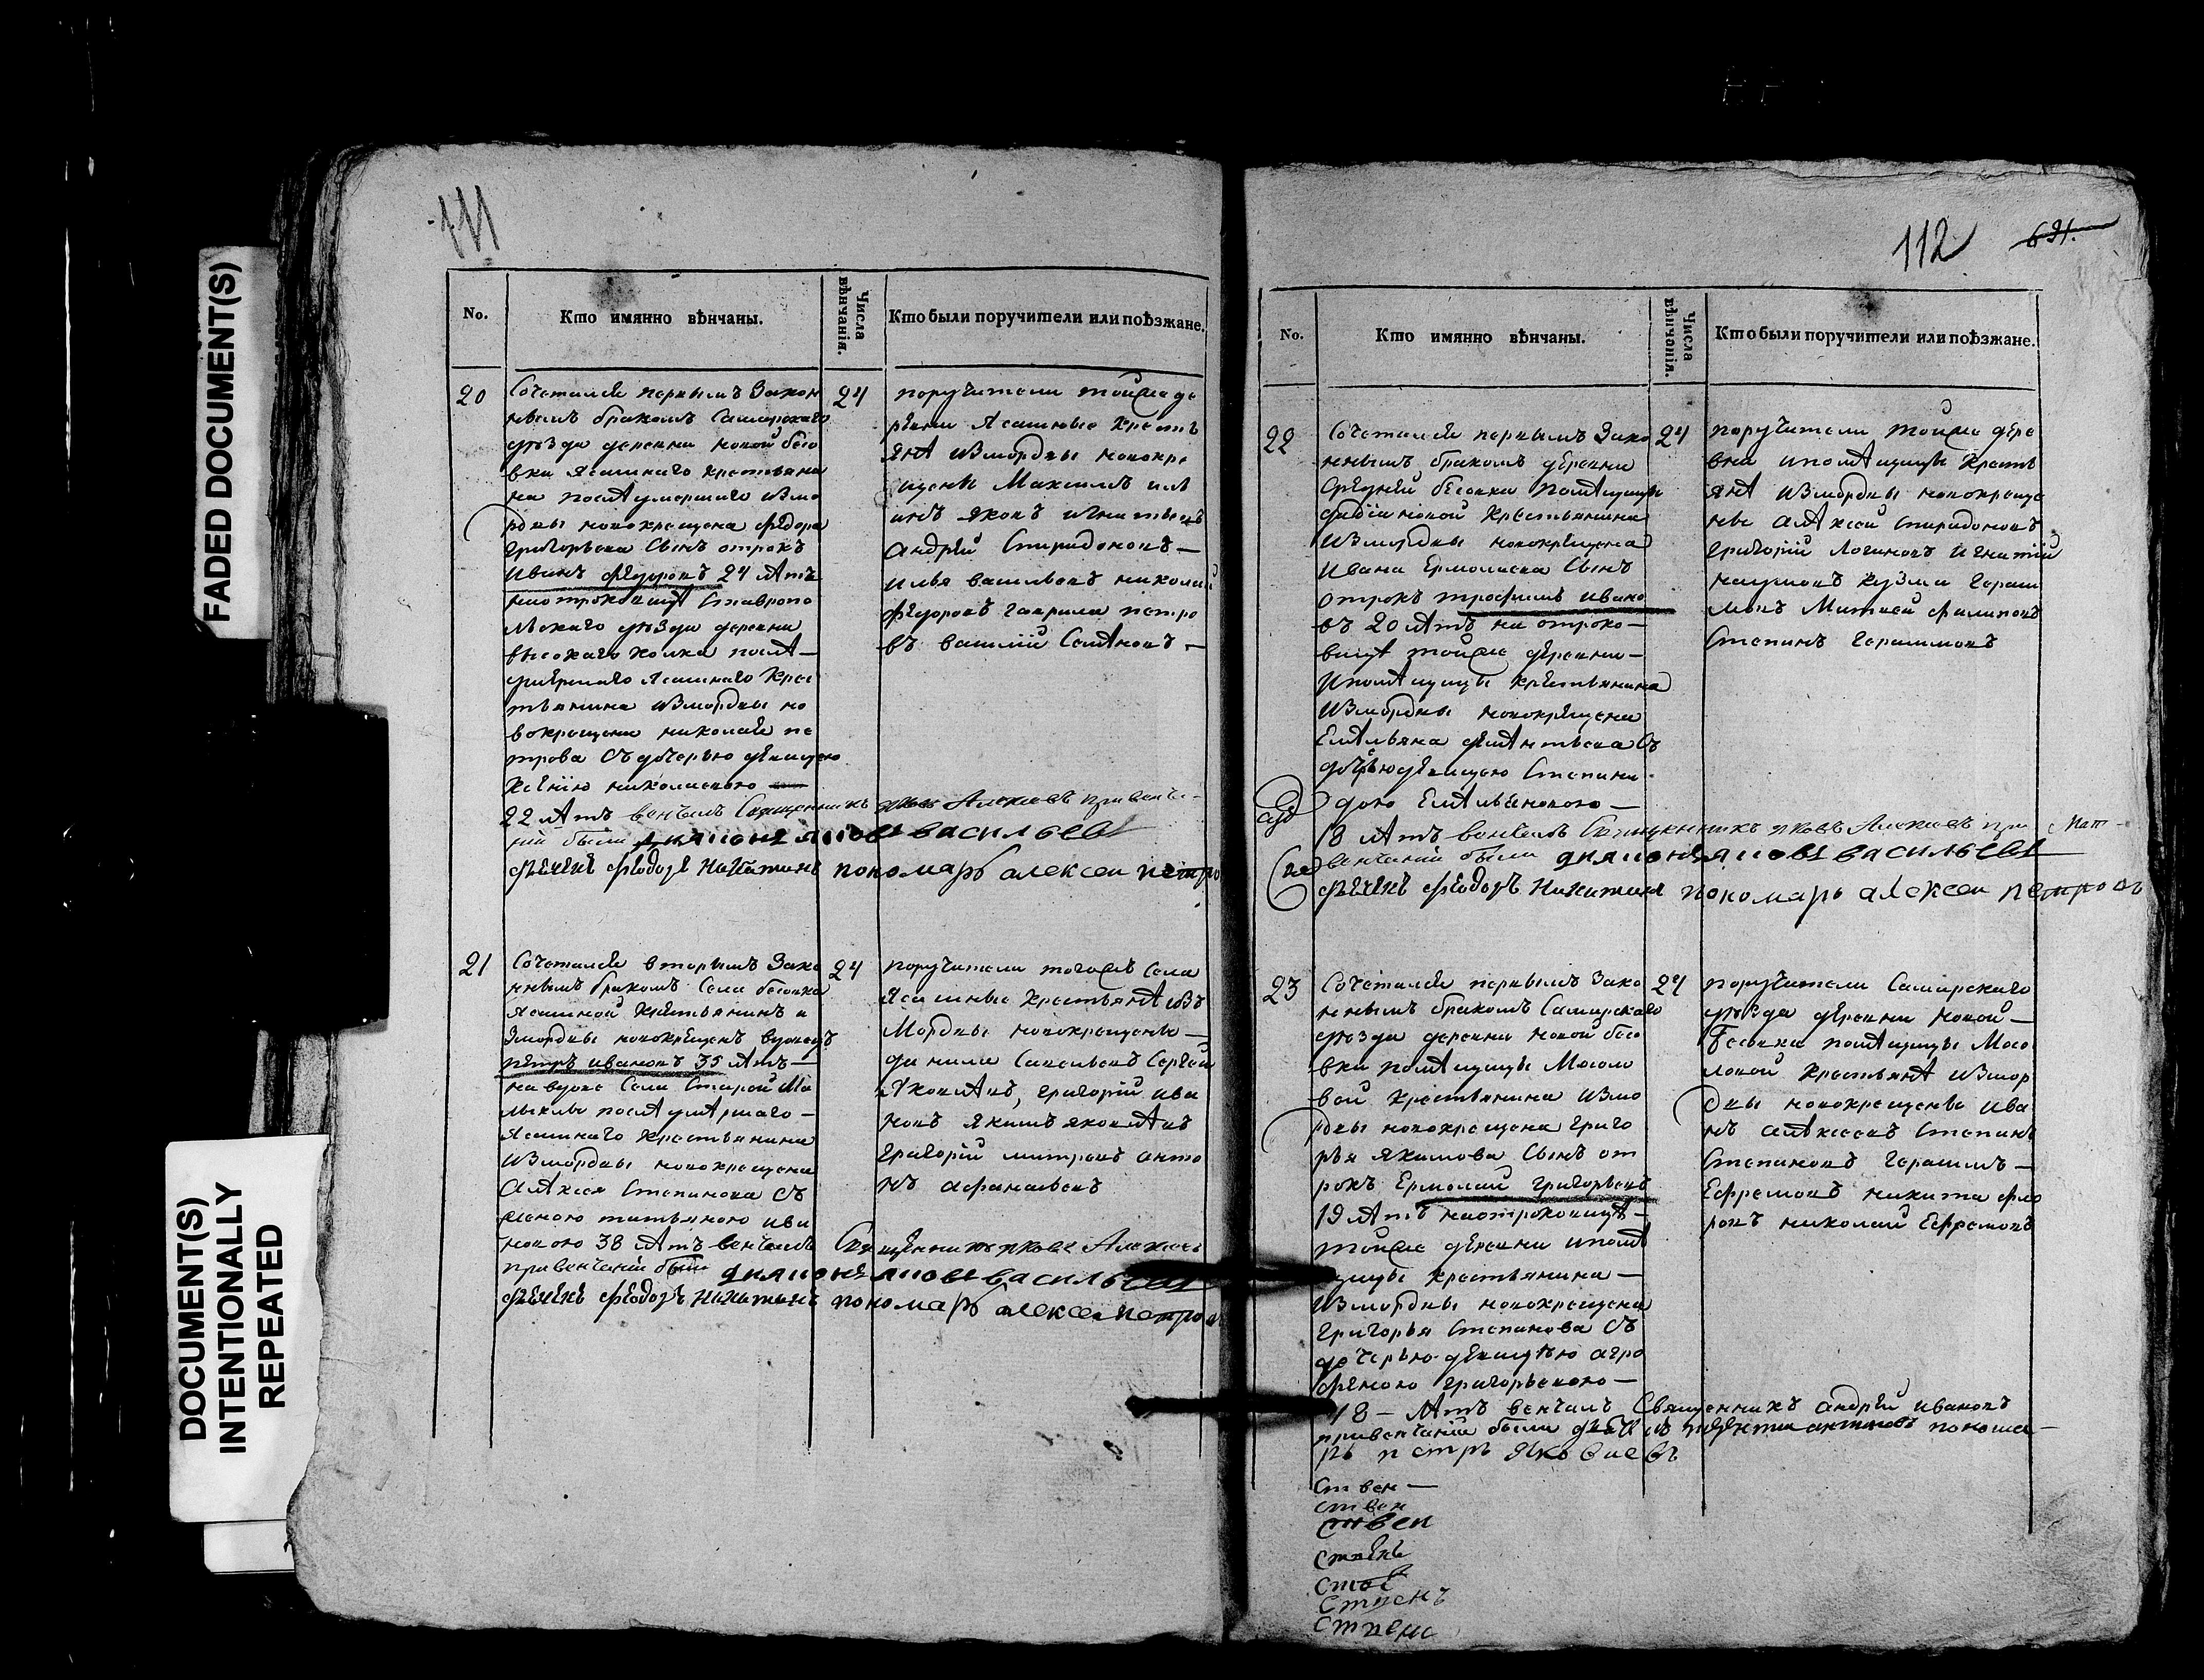 FADED DOCUMENT(S)
DOCUMENT(S)
INTENTIONALLY
REPEATED
111
No.
Кто имянно вѣнчаны.
Числа
вѣнчанія.
Кто были поручители или поѣзжане.
20
Сочетался первымъ Закон
нымъ бракомъ Самарскаго
уѣзда деревни новой бесо
вки Ясашнаго крестьяни
на послѣ умершаго измо
рдвы новокрещена Федора
Григорьева Сынъ отрокъ
Иванъ Федоровъ 24 лѣтъ
на отроковицѣ Ставропо
льскаго уѣзда деревни
высокаго колка послѣ
умершаго Ясашнаго Крес
тьянина Измордвы но
вокрещена николая пе
трова Съ дочерью девицею
Ксениею николаевою
22 лѣтъ венчалъ Священникъ Яковъ Алексеевъ при венча
нии были дияконъ яковъ васильевъ
Федоръ Никитинъ пономарь алексеи петро
24
поручители тойже де
ревни Ясашные крестъ
янѣ Измордвы новокре
щены Максимъ иль
инъ яковъ игнатьевъ
андрей Спиридоновъ
илья васильевъ николай
Федоровъ гаврила петро
въ василий Семѣновъ
21
Сочетался вторымъ Зако
ннымъ бракомъ Села бесовки
Ясашной крестьянинъ и
Змордвы новокрещенъ вдовецъ
петръ ивановъ 35 лѣтъ
на вдове Села Старой Ма
лыклы послѣ умѣршаго
Ясашнаго крестьянина
Измордвы новокрещена
Алѣксея Степанова Съ
женою татьяною ива
новою 38 лѣтъ венчалъ Священникъ яковъ Алексеевъ
при венчании были дияконъ яковъ васильевъ
Федоръ Никитинъ пономарь алексеи петровъ
24
поручители тогожъ Села
Ясашные крестьянѣ изъ
Мордвы новокрещены
данила Савельевъ Сергей
яковлѣвъ, григорий ива
новъ якимъ яковлѣвъ
григорий митровъ анто
нъ афанасьевъ
112 691.
No.
Кто имянно вѣнчаны.
Числа
вѣнчанія.
Кто были поручители или поѣзжане.
22
Сочетался первымъ Зако
ннымъ бракомъ деревни
Средней бесовки помѣщицы
крестьянина
Измордвы новокрещена
Ивана Ермолаева Сынъ
отрокъ трофимъ ивано
въ 20 лѣтъ на отроко
вицѣ тойже деревни
Ипомѣщицы крестьянина
Измордвы новокрещена
Емѣльяна Съ
дочерью девицею Степани
дою Емѣльяновою
18 лѣтъ венчалъ Священникъ яковъ Алексеевъ при
венчании были дияконъ яковъ васильевъ
Федоръ Никитинъ пономарь алексеи петровъ
24
поручители тойже дере
вни ипомѣщицы крестъ
янѣ Измордвы новокреще
ны алѣксей Спиридоновъ
григорий Логиновъ Игнатий
наумовъ кузма гараси
мовъ Матвей филиповъ
Степанъ герасимовъ
23
Сочетался первымъ Зако
ннымъ бракомъ Самарскаго
уѣзда деревни новой бесо
вки помѣщицы Мосоло
вой крестьянина Измо
рдвы новокрещена григо
рья якимова Сынъ от
рокъ Ермолай григорьевъ
19 лѣтъ на отроковицѣ
тойже деревни ипомѣ
щицы крестьянина
Измордвы новокрещена
григорья Степанова Съ
дочерью девицѣю агро
феною григорьевою
18 лѣтъ венчалъ Священникъ андрей ивановъ
при венчании были понома
рь петръ яковлевъ
24
поручители Самарскаго
уѣзда деревни новой
бесовки помѣщицы Мосо
ловой крестьянѣ Измор
двы новокрещены ива
нъ алѣксеевъ Степанъ
Степановъ герасимъ
Ефремовъ никита фло
ровъ николай Ефремовъ
Ствен
ствен
ствен